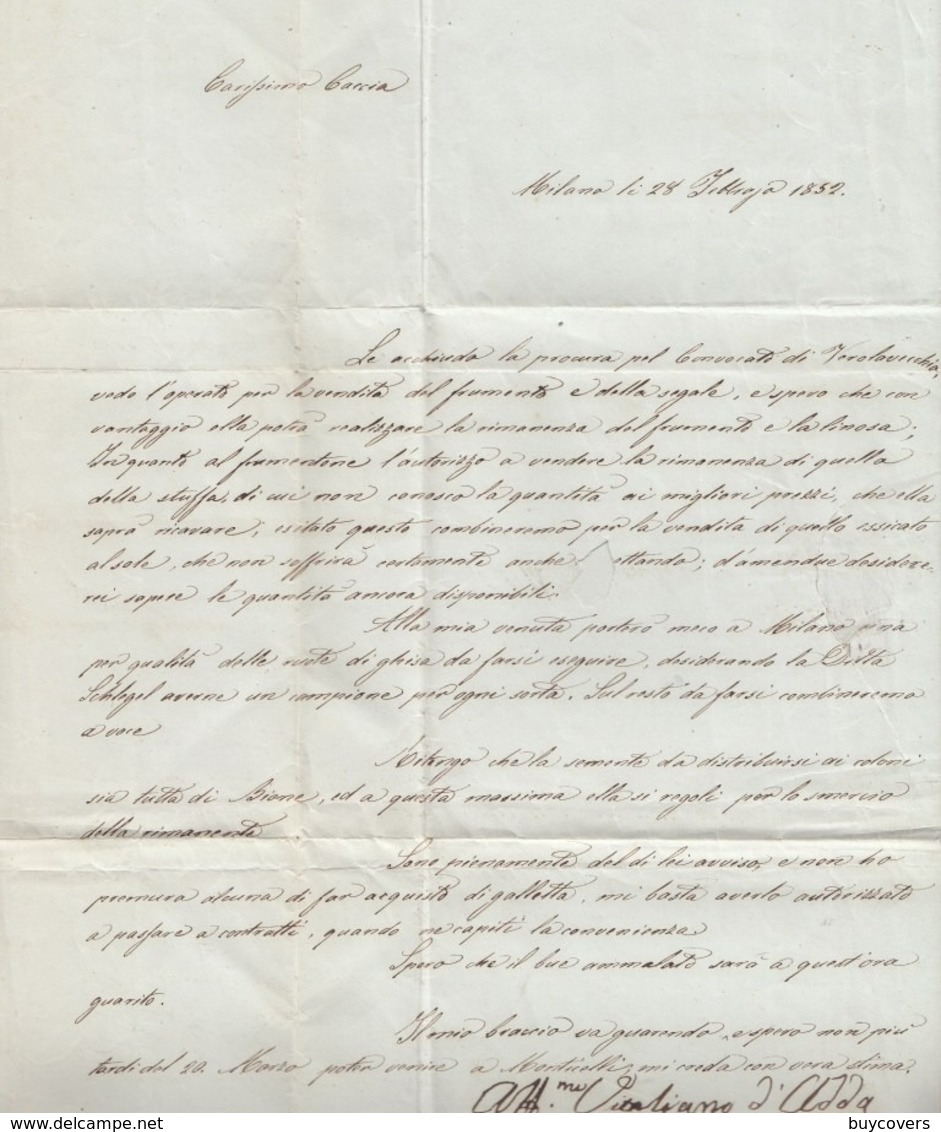 Carissimo Caccia
Milano li 28 Febbrajo 1852.
Le acchiudo la procura pel Convocato di Verolavecchio,
vedo l'operato per la vendita del frumento e della segale, e spero che con
vantaggio ella potrà realizzare la rimanenza del frumento e la linosa;
In quanto al frumentone l'autorizzo a vendere la rimanenza di quella
della stuffa, di cui non conosco la quantità ai migliori prezzi, che ella
saprà ricavare; esitato questo combineremo per la vendita di quello essicato
al sole, che non soffrirà certamente anche ettando; d'amendue desidere-
rei sapere le quantità ancora disponibili.
Alla mia venuta porterò meco a Milano una
per qualità delle ruote di ghisa da farsi eseguire, desiderando la Ditta
Schlegel averne un campione per ogni sorta. Sul resto da farsi combineremo
a voce
Ritengo che la semente da distribuirsi ai coloni
sia tutta di Bione, ed a questa massima ella si regoli per lo smercio
della rimanente.
Sono pienamente del di lei avviso, e non ho
premura alcuna di far acquisto di galletta, mi basta averlo autorizzato
a passare a contratti, quando ne capiti la convenienza.
Spero che il bue ammalato sarà a quest'ora
guarito.
Il mio braccio va guarendo, e spero non più
tardi del 20. Marzo poter venire a Monticelli; mi creda con vera stima.
Aff.mo Vitaliano d'Adda
buycovers